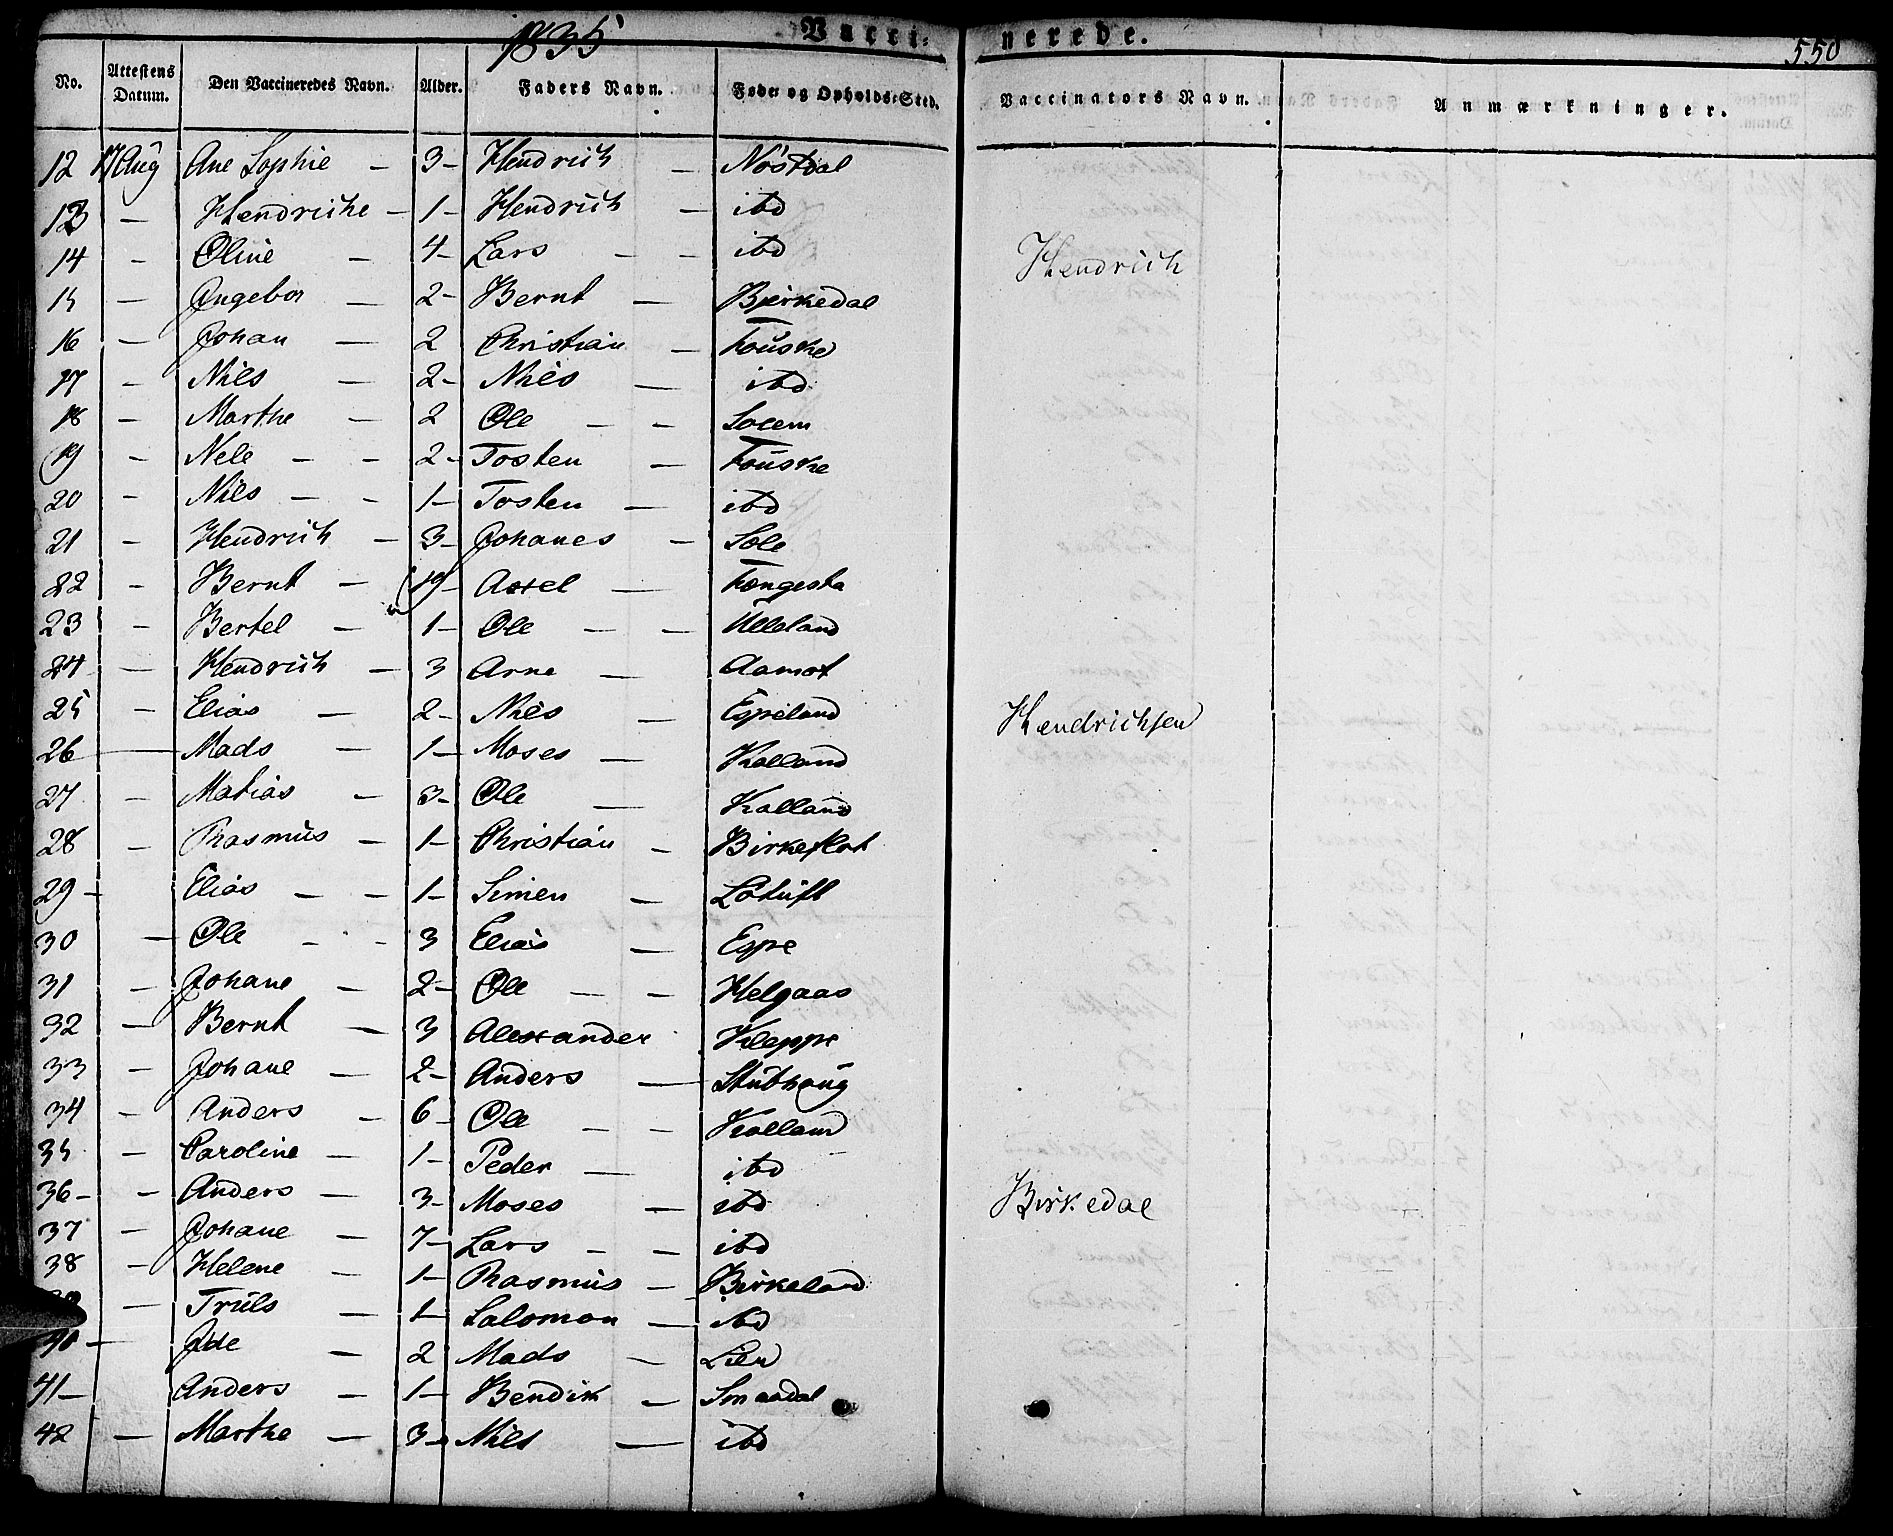 1835 Vacci- nerede. 550
No. Attestens Datum. Den Vaccineredes Navn. Alder. Faders Navn. Føde- og Opholds-Sted. Vaccinators Navn. Anmærkninger.
12 17 Aug Ane Sophie - 3 - Hendrich - Nöstdal
13 - Hendriche - 1 - Hendrich - ibd
14 - Oline - 4 - Lars - - ibd Hendrich
15 - Ingebor - 2 - Bernt - Bjerkedal
16 - Johan - 2 Christian - Fouske
17 - Niels - 2 - Niels - ibd
18 - Marthe - 2 Ole - - Solem
19 - Nele - - 2 - Tosten - Fouske
20 - Niels - - 1 - Tosten - ibd
21 - Hendrich - 3 - Johanes - Sole
22 - Bernt - 19 - Axel - Fængesta
23 - Bertel - 1 - Ole - - Ulleland
24 - Hendrich - 3 Arne - Aamot
25 - Elias - 2 - Niels - Espeland Hendrichsen
26 - Mads - 1 - Moses - Kalland
27 - Matias - 3 - Ole - Kalland
28 - Rasmus - 1 - Christian - Birkeflot
29 - Elias - - 1 - Simen - Lotuft
30 - Ole - - 3 Elias - Espe
31 - Johane - 2 - Ole - - Helgaas
32 - Bernt - 3 Alexander Kleppe
33 - Johane - 2 - Anders - Stubhaug
34 - Anders - 6 - Ole - - Kalland
35 - Caroline - 1 - Peder - ibd
36 - - Anders - 3 - Moses - ibd Birkedal
37 - Johane - 7 - Lars - - ibd
38 - Helene - 1 - Rasmus - Birkeland
39 - Truls - 1 - Salomon - ibd
40 - Ode - 2 Mads - Lien
41 - Anders - 1 - Bendik - Smaadal
42 - Marthe - 3 - Niels - ibd